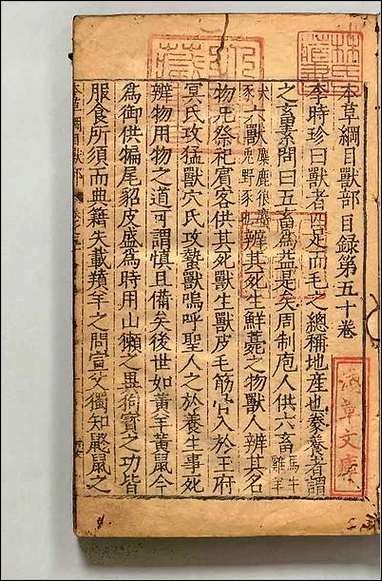 本草綱目獸部目録第五十卷
李時珍曰獸者四足而毛之總稱地産也豢養者謂
之畜素問曰五畜爲益是矣周制庖人供六畜馬牛雞羊
犬豕六獸麋鹿狼麕兎野豕也辨其死生鮮薧之物獸人辨其名
物凡祭祀賓客供其死獸生獸皮毛筋骨入於王府
冥氏攻猛獸穴氏攻蟄獸嗚呼聖人之於養生事死
辨物用物之道可謂慎且備矣後世如黃羊黃鼠今
為御供犏尾貂皮盛爲時用山獺之異狗寳之功皆
服食所須而典籍失載羵羊之問宣父獨知鼮鼠之
本草綱目獸部